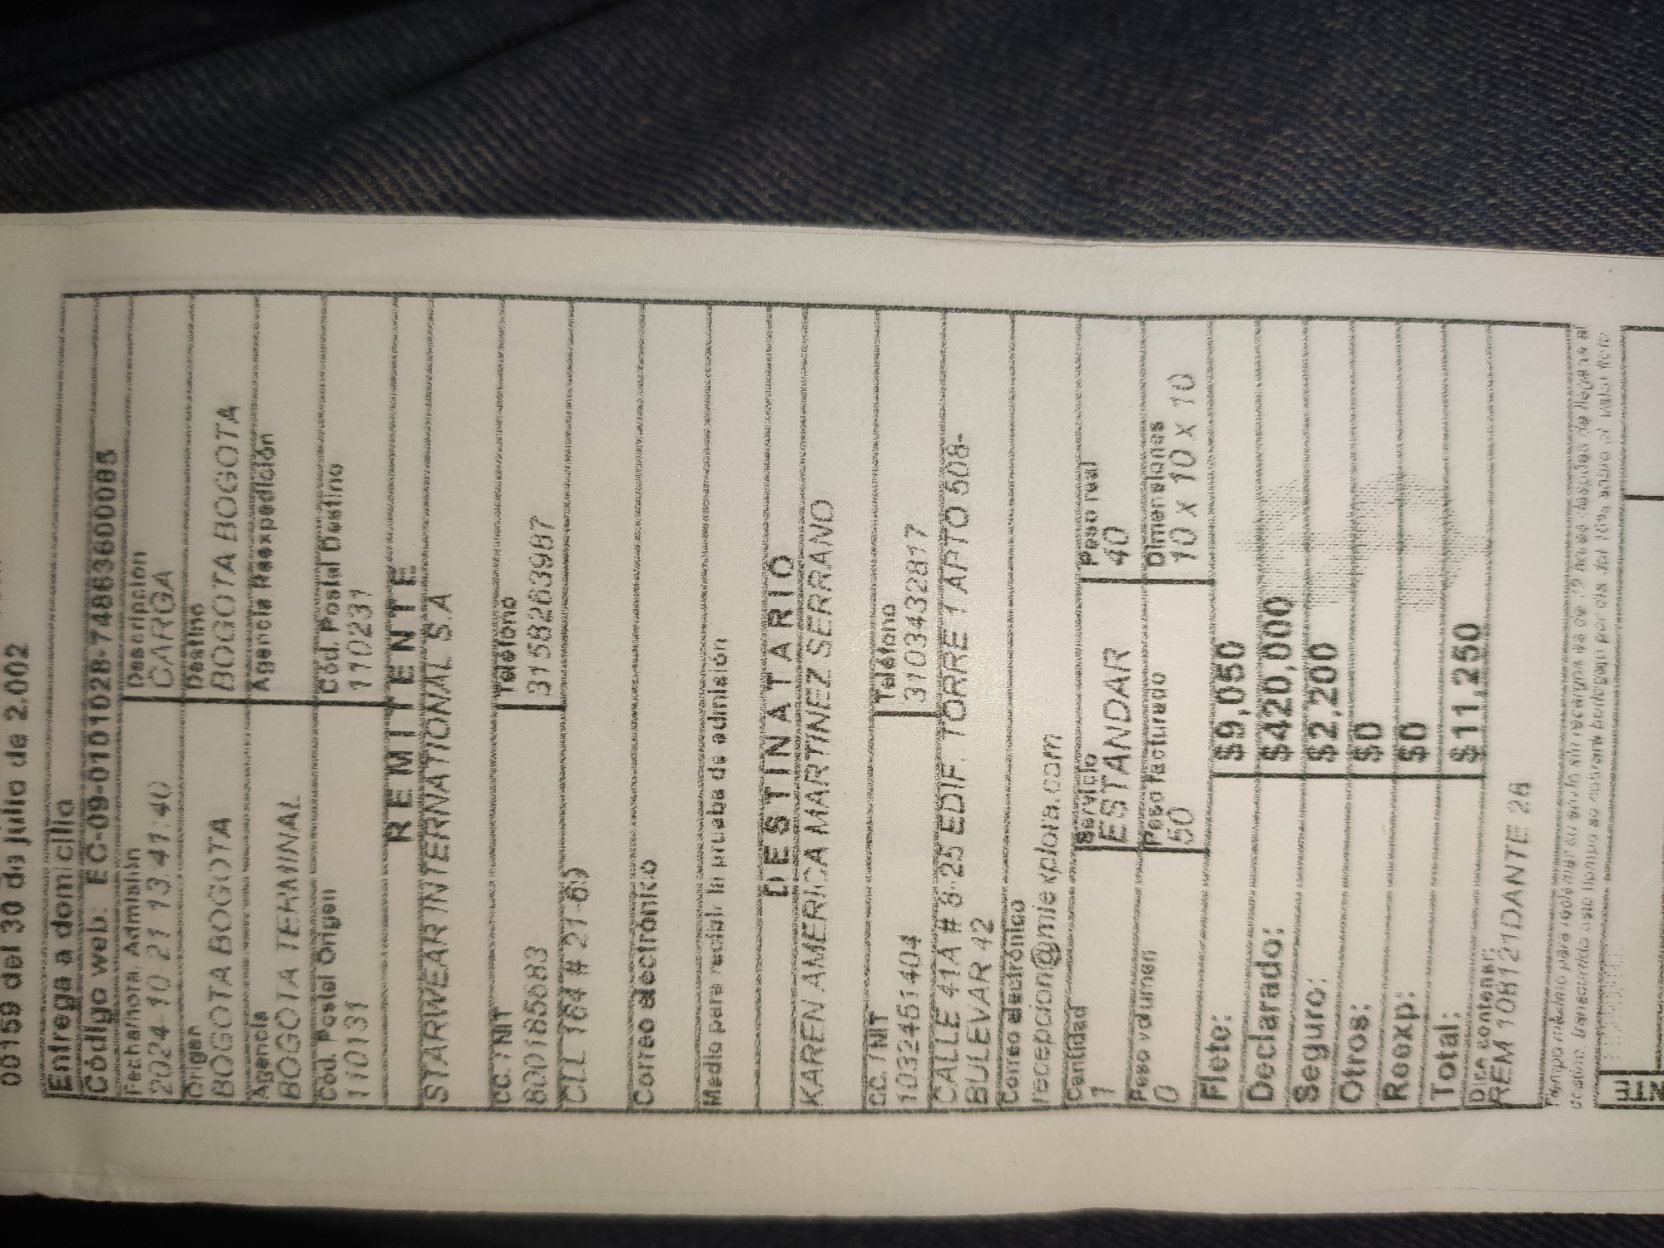 00159 del 30 de julio de 2.002
Entrega a domicilio
Código web: EC-09-010102B-7486360008
Fecha/hora Admisión Descripción
2024-10-21 13:41:40 CARGA
Origen Destino
BOGOTA BOGOTA BOGOTA BOGOTA
Agencia Agencia Reexpedición
BOGOTA TERMINAL
Cód. Postal Origen Cód. Postal Destino
110131 110231
REMITENTE
STARWEAR INTERNATIONAL S.A
CC./NIT Teléfono
800185683 3158263987
CLL 164 # 21-69
Correo electrónico
Medio para recibir la prueba de admisión
DESTINATARIO
KAREN AMERICA MARTINEZ SERRANO
CC./NIT Teléfono
1032461404 3103432817
CALLE 41A # 8-25 EDIF. TORRE 1 APTO 508-
BULEVAR 42
Correo electrónico
recepcion@mie xplora.com
Cantidad Servicio Peso real
1 ESTANDAR 40
Peso volumen Peso facturado Dimensiones
0 50 10 x 10 x 10
Flete: $9,050
Declarado: $420,000
Seguro: $2,200
Otros: $0
Reexp: $0
Total: $11,250
Dice contener:
REM 108121DANTE 28